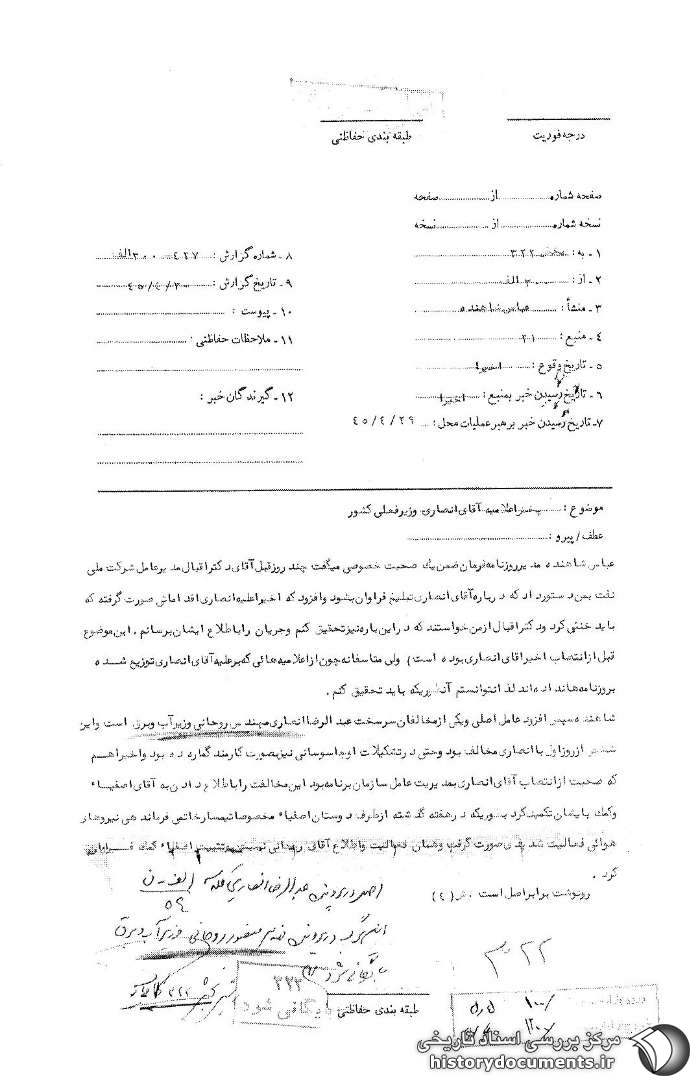 درجه فوریت
طبقه بندی حفاظتی
صفحه شماره از صفحه
نسخه شماره از نسخه
۱ - به : بخش ۳۲۲
۲ - از : ۳۰۰ الف
۳ - منشأ : عباس شاهنده
۴ - منبع : ۲۱
۵ - تاریخ وقوع : اخیرا
۶ - تاریخ رسیدن خبر بمنبع : اخیرا
۷- تاریخ رسیدن خبر برهبر عملیات محل : ۴۵/۴/۲۹
۸ - شماره گزارش : ۴۲۷ ۳۰۰الف
۹ - تاریخ گزارش : ۴۵/۴/۳۰
۱۰ - پیوست :
۱۱ - ملاحظات حفاظتی :
۱۲ - گیرندگان خبر :
موضوع : پخش اعلامیه آقای انصاری وزیر فعلی کشور
عطف / پیرو :
عباس شاهنده مدیر روزنامه فرمان ضمن یک صحبت خصوصی میگفت چند روز قبل آقای دکتر اقبال مدیر عامل شرکت ملی
نفت بمن دستور داد که درباره آقای انصاری تبلیغ فراوان بشود وافزود که اخیرا علیه انصاری اقداماتی صورت گرفته که
باید خنثی کرد ودکتر اقبال از من خواستند که در این باره نیز تحقیق کنم وجریان را باطلاع ایشان برسانم . این موضوع
قبل از انتصاب اخیر اقای انصاری بوده است ) ولی متاسفانه چون از اعلامیه هائی که بر علیه آقای انصاری توزیع شده
بروزنامه ها نداده اند لذا نتوانستم آنطوریکه باید تحقیق کنم .
شاهنده سپس افزود عامل اصلی ویکی از مخالفان سرسخت عبدالرضا انصاری مهندس روحانی وزیر آب وبرق است واین
شخص از روز اول با انصاری مخالف بود وحتی در تشکیلات او جاسوسانی نیز بصورت کارمند گمارده بود واخیرا هم
که صحبت از انتصاب آقای انصاری بمدیریت عامل سازمان برنامه بود این مخالفت را با طلاع دادن به آقای اصفیاء
وکمک بایشان تکمیل کرد بطوریکه در هفته گذشته از طرف دوستان اصفیاء مخصوصا تیمسار خاتمی فرمانده نیروهای
هوائی فعالیت شدیدی صورت گرفت وهمان فعالیت واطلاع آقای روحانی تثبیت اصفیاء کمک فراوان
کرد .
رونوشت برابر اصل است .
اصل در پرونده عبدالرضا انصاری
الف - ن
۵۹
در پرونده مهندس منصور روحانی وزیر آب و برق
بایگانی شود
۳۲۲
۳۲۲
بایگانی شود
طبقه بندی حفاظتی
مرکز بررسی اسناد تاریخی
historydocuments.ir